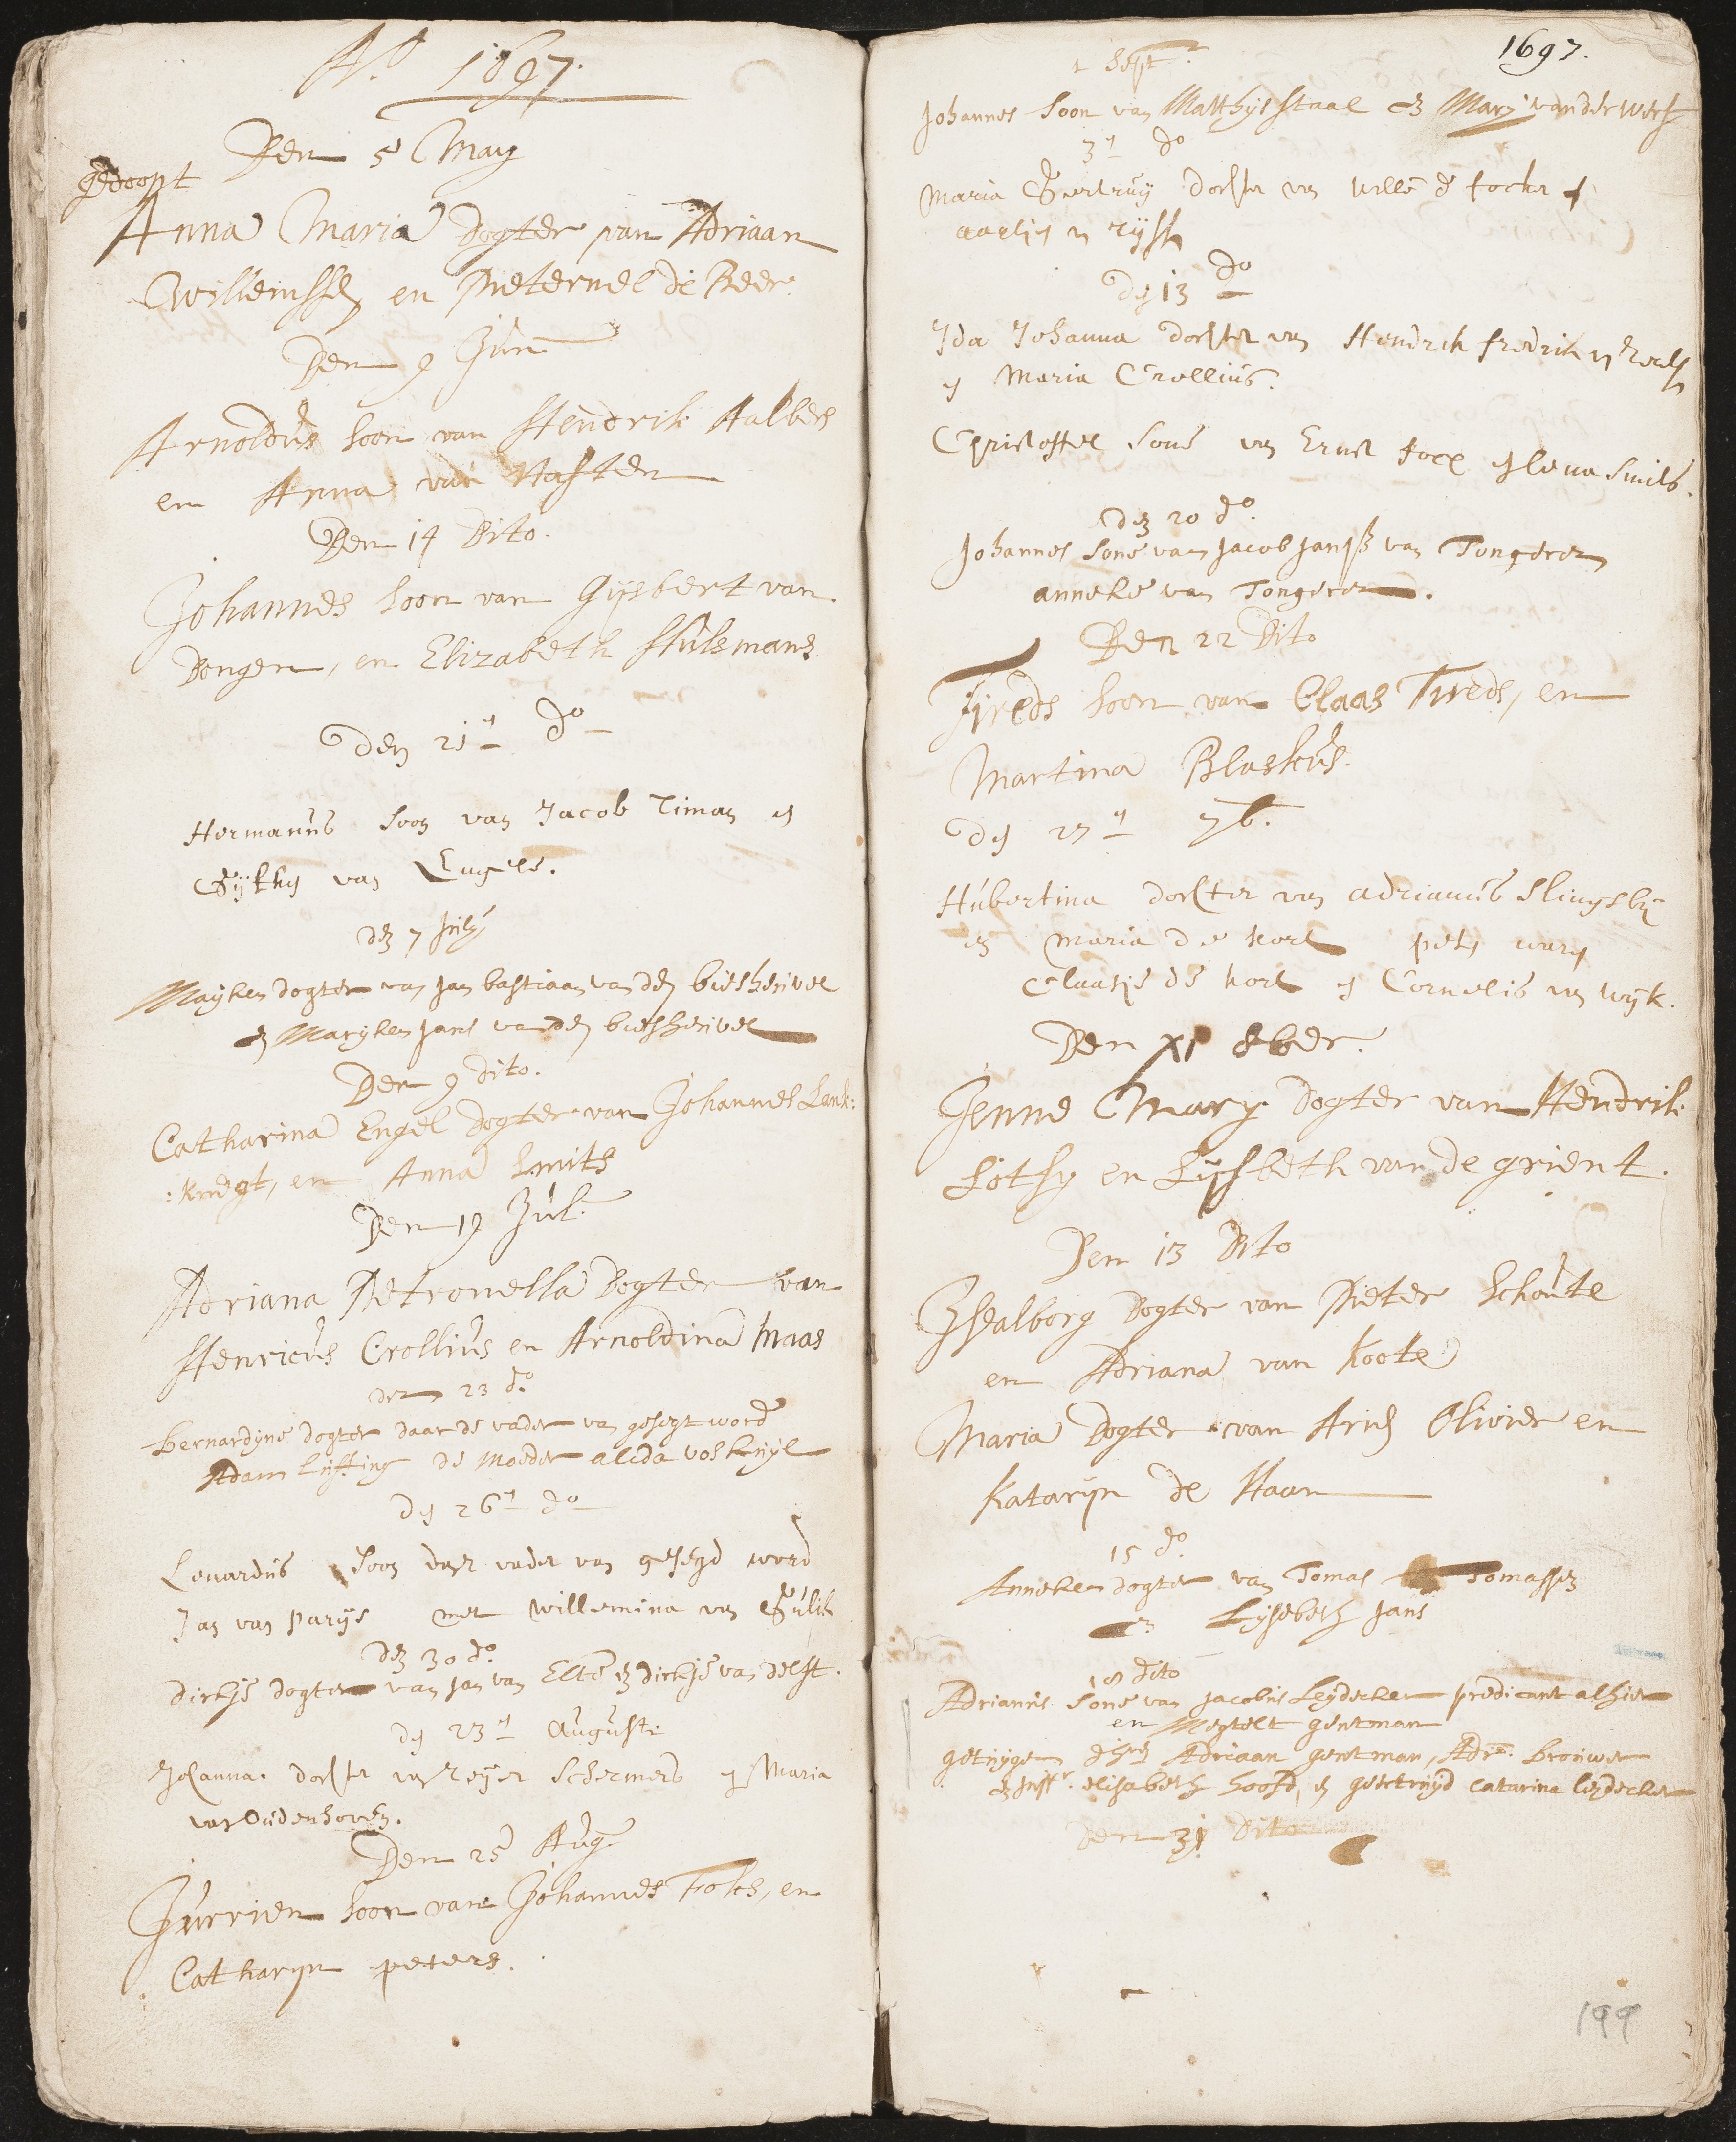 Ao 1697.
Den 5 May
gedoopt
Anna Maria Dogter van Adriaan
Willemsse en Pieternel de Beer.
Den 9 Jun
Arnoldus soon van Hendrik Aalbers
en Anna van Hasten
Den 14 Dito.
Johannes soon van Gijsbert van
Dongen, en Elizabeth
den 21 do
Hermanus soon van Jacob Timan en
van Engele.
den 7 July
Mayken dogter van Jan bastiaan van den biesheuvel
en Maryken Jans van den biesheuvel
Den 9 dito.
Catharina Engel Dogter van Johannes Lank:
:knegt, en Anna Smits
Den 19 Jul.
Adriana Petronella Dogter van
Henricus Crollius en Arnoldina Maas
den 23 do
bernardyne dogter daar de vader van gesegt word
Adam de Moeder alida voskuyl
den 26 do
Leuardus soon daer vader van gesegd word
Jan van Parijs met willemina van Gulik
den 30 do.
dirkje dogter van Jan van Elte en dirkje van delft.
den 23 Augusti
Johanna dochter van Reyer Schermers en Maria
van Oudenhoven.
Den 25 Aug
Jurrien soon van Johannes Foks, en
Catharyn peters.
1697.
1 Sept
Johannes Soon van Matthijs Staal en Mary van der Werf
3 do
Maria Geertruy dochter van Wille de Focker en
aaeltje van Rijssen
den 13 do
Ida Johanna dochter van Hendrik fredrik van
en Maria Crollius.
Christoffel Sone van Ernst Foce en lena Smits.
den 20 do.
Johannes Sone van Jacob Janse van Tongeren
anneke van Tongeren.
Den 22 Dito
Tjreds soon van Claas Tireds, en
Martina Blaskus.
den 27 7b.
Hubertina dochter van adrianus Slingsby
en maria de kort peten waren
Claasje de kort en Cornelis van wijk.
Den XI 8ber.
Jenne Mary Dogter van Hendrik
Lothy en Lysbeth van de grient.
Den 13 Dito
Isealborg Dogter van Pieter Schoute
en Adriana van Koote
Maria Dogter van Arie Olivier en
Kataryn de Haan
15 do.
Anneken dogter van Tomas Tomassen
en Lysebeth Jans
18 dito
Adrianus Sone van Jacobus Leydecker predicant alhier
en Megtelt gentman
getuygen dheer Adriaan gentman, Adre. brouwer
en Juffr. elisabeth hoofd, en geertruyd catarina leydecker
Den 31 Dito
199